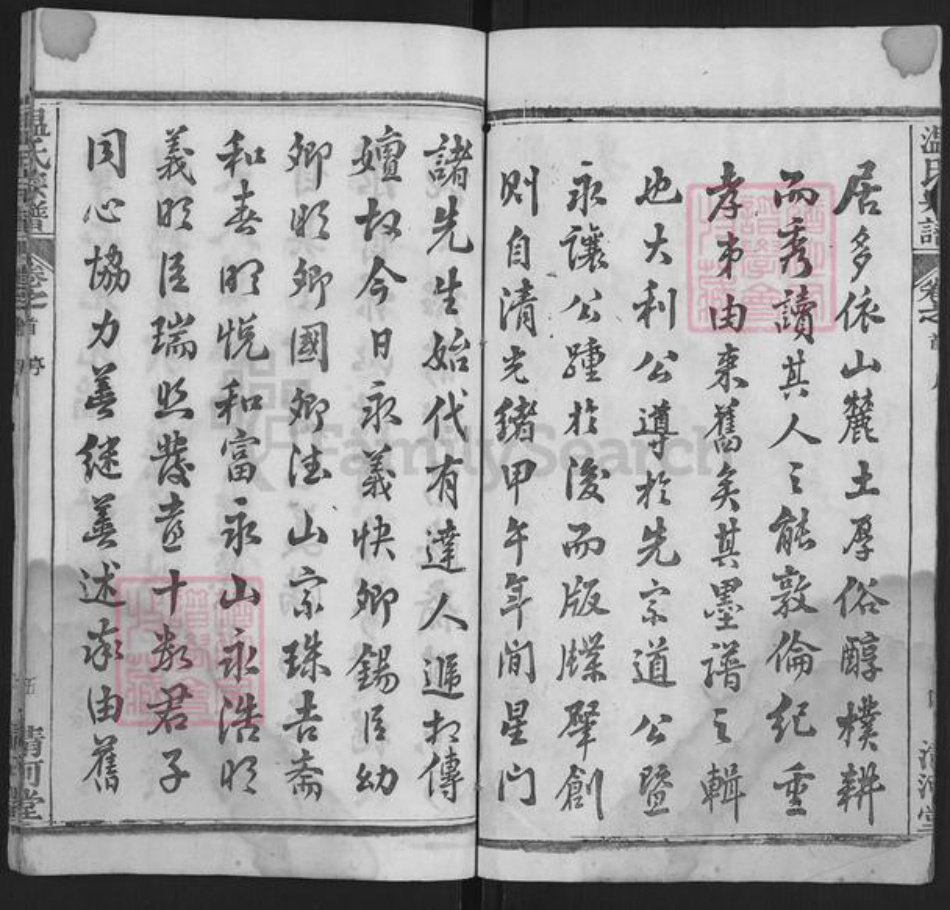 居多依山麓土厚俗醇樸耕
而秀讀其人之能敦倫紀重
孝弟由来舊矣其墨譜之輯
也大利公導於先宗道公暨
永讓公踵於後而版牒肇創
則自清光緒甲午年間星門
諸先生始代有達人遞相傳
嬗故今日永義快卿錫臣幼
卿明卿國卿法山宗珠吉斋
和春明悦和富永山永浩明
義明臣瑞照發意十数君子
同心協力善继善述率由舊
温氏族譜
卷之首
清河堂
FamilySearch